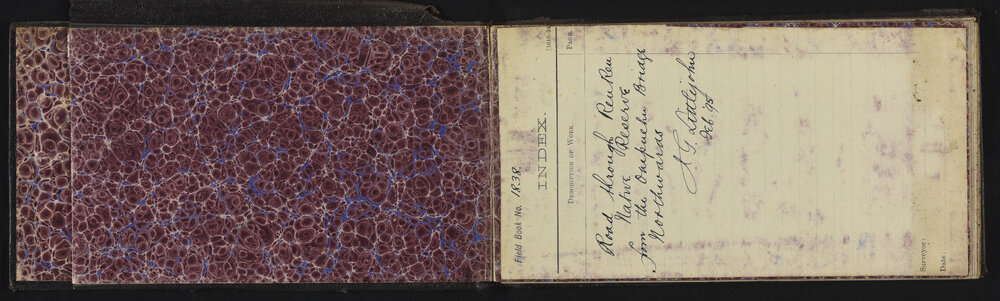 Field Book No. 1838
[1616-94
INDEX.
DESCRIPTION OF WORK.
PAGE.
Road through Reu Reu
Native Reserve
from the Onepuehu Bridge
Northwards
J. G. Littlejohn
Feb 95
Surveyor:
Date: